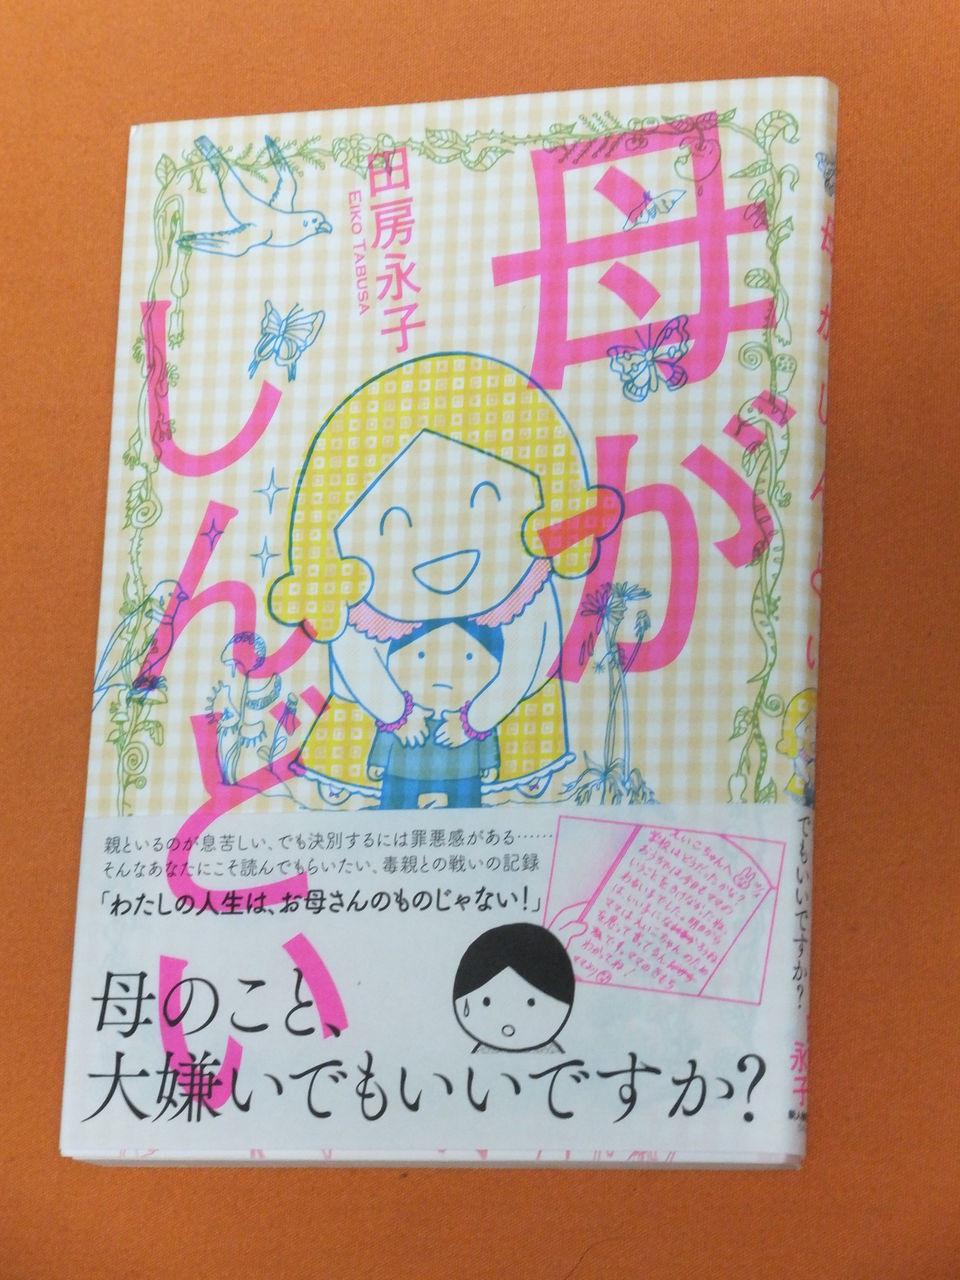 母がしんどい
田房永子
EIKO TABUSA
親といるのが息苦しい、でも決別するには罪悪感がある……
そんなあなたにこそ読んでもらいたい、毒親との戦いの記録
「わたしの人生は、お母さんのものじゃない!」
母のこと、
大嫌いでもいいですか?
えいこちゃんへ
学校はどうだったかな?
母がしんどい
でもいいですか?
永子